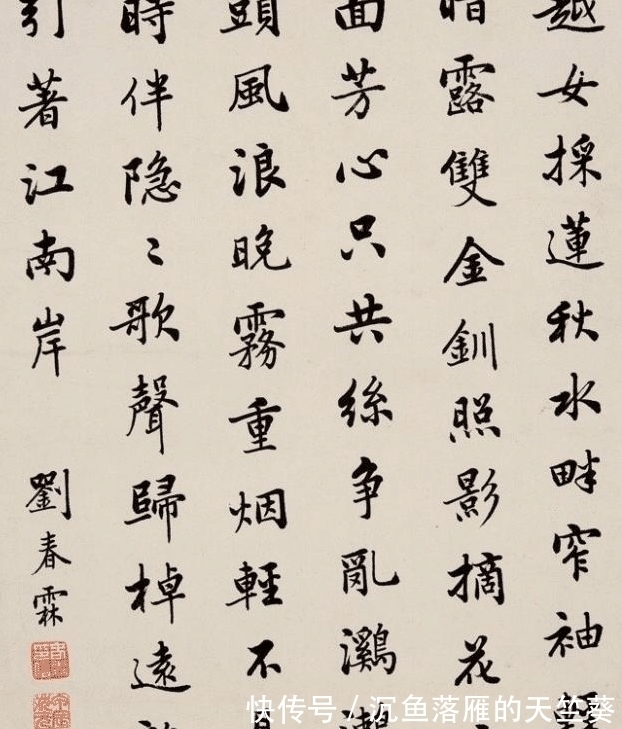 越女採蓮秋水畔窄袖
暗露雙金釧照影摘花
面芳心只共絲争亂鸂
頭風浪晚霧重烟輕不
時伴隐〻歌聲歸棹遠
引著江南岸
劉春霖
快传号 / 沉鱼落雁的天竺葵